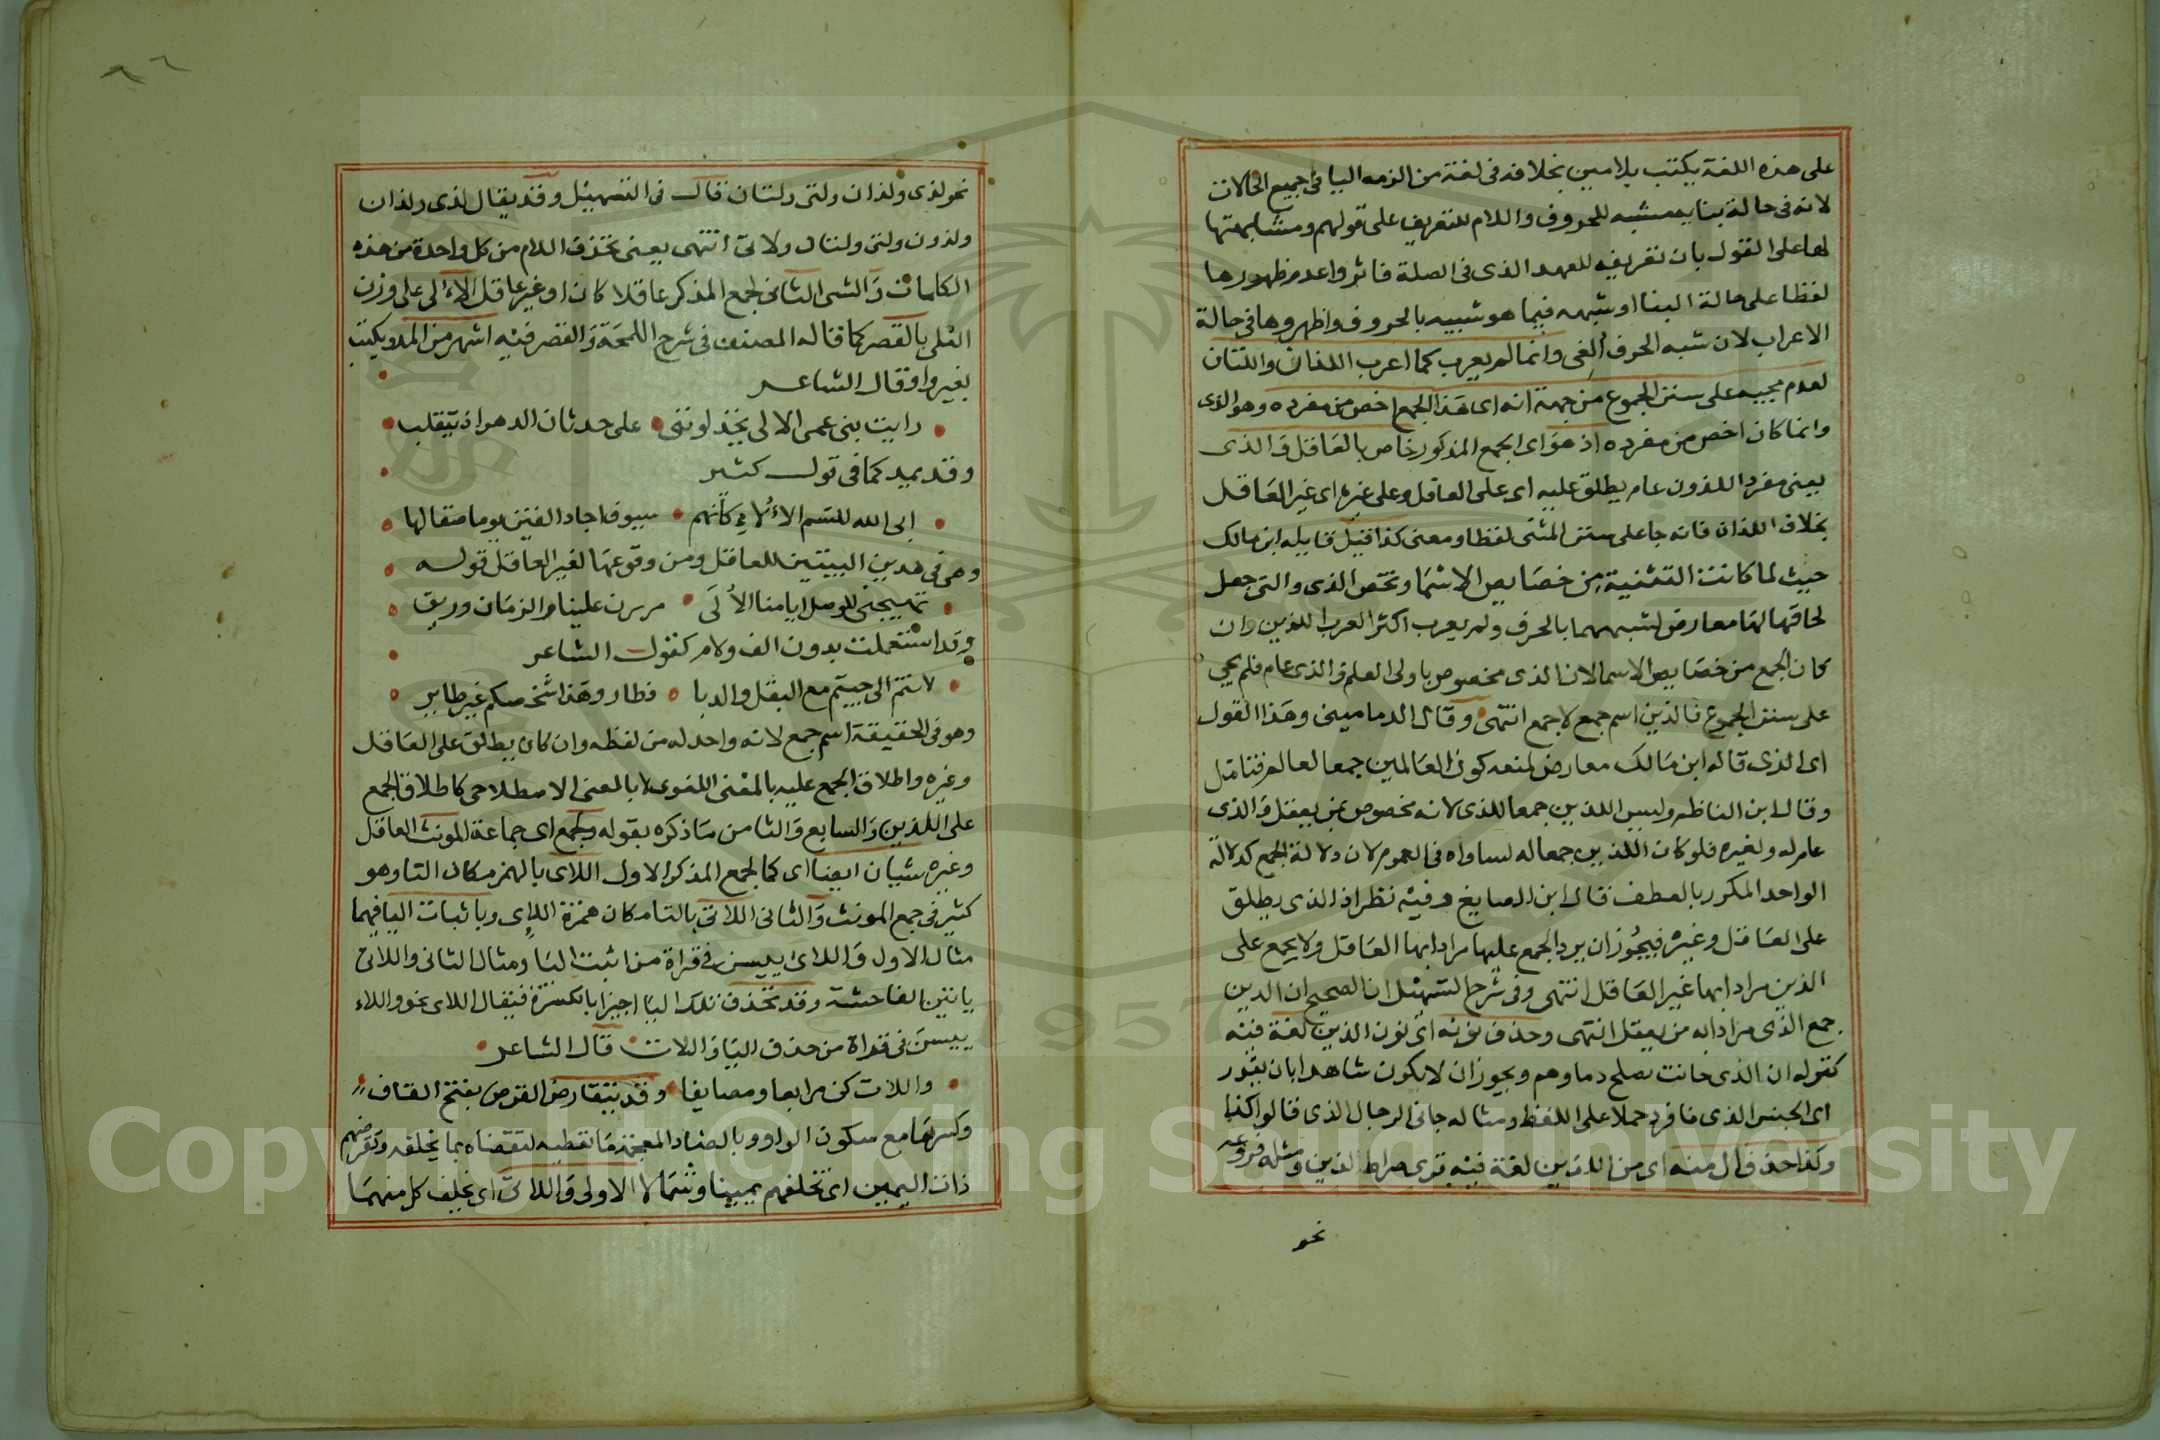 على هذه اللغة يكتب بلامين بخلافه فى لغة من الزمه اليا فى جميع الحالات
لانه فى حالة بنايه مشبه للحروف واللام للتعريف على قولهم ومشابهتها
لها على القول بان تعريفه للعهد الذى فى الصلة فاثروا عدم ظهورها
لفظا على حالة البنا او شبهه فيما هو شبيه بالحروف واظهروها فى حالة
الاعراب لان شبه الحرف الغى وانما لم يعرب كما اعرب اللذان واللتان
لعدم مجييه على سنن الجموع من جهة انه اى هذا الجمع اخص من مفرده وهو الذى
وانما كان اخص من مفرده اذ هو اى الجمع المذكور خاص بالعاقل والذى
يعنى مفرد اللذون عام يطلق عليه اى على العاقل وعلى غيره اى غير العاقل
بخلاف اللذان فانه جا على سنن المثنى لفظا ومعنى كذا قيل قايله ابن مالك
حيث لما كانت التثنية من خصايص الاسما وتختص الذى والتى جعل
لحاقها لهما معارض لشبههما بالحرف ولم يعرب اكثر العرب للذين وان
كان الجمع من خصايص الاسما لان الذى مخصوص باولى العلم والذى عام فلم يجى
على سنن الجموع فالذين اسم جمع لا جمع انتهى وقال الدمامينى وهذا القول
اى الذى قاله ابن مالك معارض لمنعه كون العالمين جمعا لعالم فتامل
وقال ابن الناظم وليس اللذين جمعا للذى لانه مخصوص بمن يعقل والذى
عام له ولغيره فلو كان اللذين جمعا له لساواه فى العموم لان دلالة الجمع كدلالة
الواحد المكرر بالعطف قال ابن الصايغ وفيه نظر اذ الذى يطلق
على العاقل وغيره فيجوز ان يرد الجمع عليها مرادا بها العاقل ولا يجمع على
الذين مرادا بها غير العاقل انتهى وفى شرح التسهيل ان الصحيح ان الذين
جمع الذى مرادا به من يعقل انتهى وحذف نونه اى نون الذين لغة فيه
كقوله ان الذى حانت بفلج دماوهم ويجوز ان لا يكون شاهدا بان يقدر
اى الجنس الذى فافرد حملا على اللفظ ومثاله جانى الرجال الذى قالوا كذا
وكذا حذف ال منه اى من اللذين لغة فيه قرى صراط لذين ومثله فروعه
نحو
نحو لذى ولذان ولتى ولتان قال فى التسهيل وقد يقال لذى ولذان
ولذون ولتى ولتان ولاتى انتهى يعنى بحذف اللام من كل واحدة من هذه
الكلمات والشى الثانى لجمع المذكر عاقلا كان او غير عاقل الالى على وزن
العلى بالقصر كما قاله المصنف فى شرح اللمحة والقصر فيه اشهر من المد ويكتب
بغير واو قال الشاعر
رايت بنى عمى الالى يخذلوننى على حدثان الدهر اذ يتقلب
وقد يمد كما فى قول كثير
ابى الله للشم الالاء كانهم سيوف اجاد القين يوما صقالها
وهى فى هذين البيتين للعاقل ومن وقوعها لغير العاقل قوله
تهيجنى للوصل ايامنا الالى مررن علينا والزمان وريق
وقد استعملت بدون الف ولام كقول الشاعر
لانتم الى جيتم مع البقل والدبا فطار وهذا شخصكم غير طاير
وهو فى الحقيقة اسم جمع لانه واحد له من لفظه وان كان يطلق على العاقل
وغيره واطلاق الجمع عليه بالمعنى اللغوى لا بالمعنى الاصطلاحى كاطلاق الجمع
على اللذين والسابع والثامن ما ذكره بقوله ولجمع اى جماعة المونث العاقل
وغيره شيان ايضا اى كما لجمع المذكر الاول اللاى بالهمز مكان التا وهو
كثير فى جمع المونث والثانى اللاتى بالتا مكان همزة اللاى وباثبات اليا فيهما
مثال الاول واللاى ييسن فى قراة من اثبت اليا ومثال الثانى واللاتى
ياتين الفاحشة وقد تحذف تلك اليا اجتزا بالكسرة فيقال اللاى نحو واللاء
ييسن فى قراة من حذف اليا واللات قال الشاعر
واللات كن مرابعا ومصايفا وقد يتقارض القرض بفتح القاف
وكسرها مع سكون الراو وبالضاد المعجمة ما تعطيه لتقضاه بما يخلفه وتقرضهم
ذات اليمين اى تخلفهم يمينا وشمالا الاولى واللاتى اى يخلف كل منهما
Copyright © King Saud University
1957